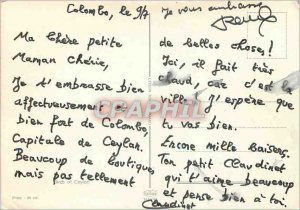 Colombo, le 9/7
Ma Chère petite
Maman Chérie,
Je t'embrasse bien
affectueusement et
bien fort de Colombo,
Capitale de Ceylan.
Beaucoup de boutiques
mais pas tellement
de belles choses!
Ici, il fait très
chaud, car c'est la
ville. J'espère que
tu vas bien.
Encore mille baisers.
Ton petit Claudinet
qui t'aime beaucoup
et pense bien à toi.
Claudinet
Je vous embrasse
CPARAMA
of Ceylon